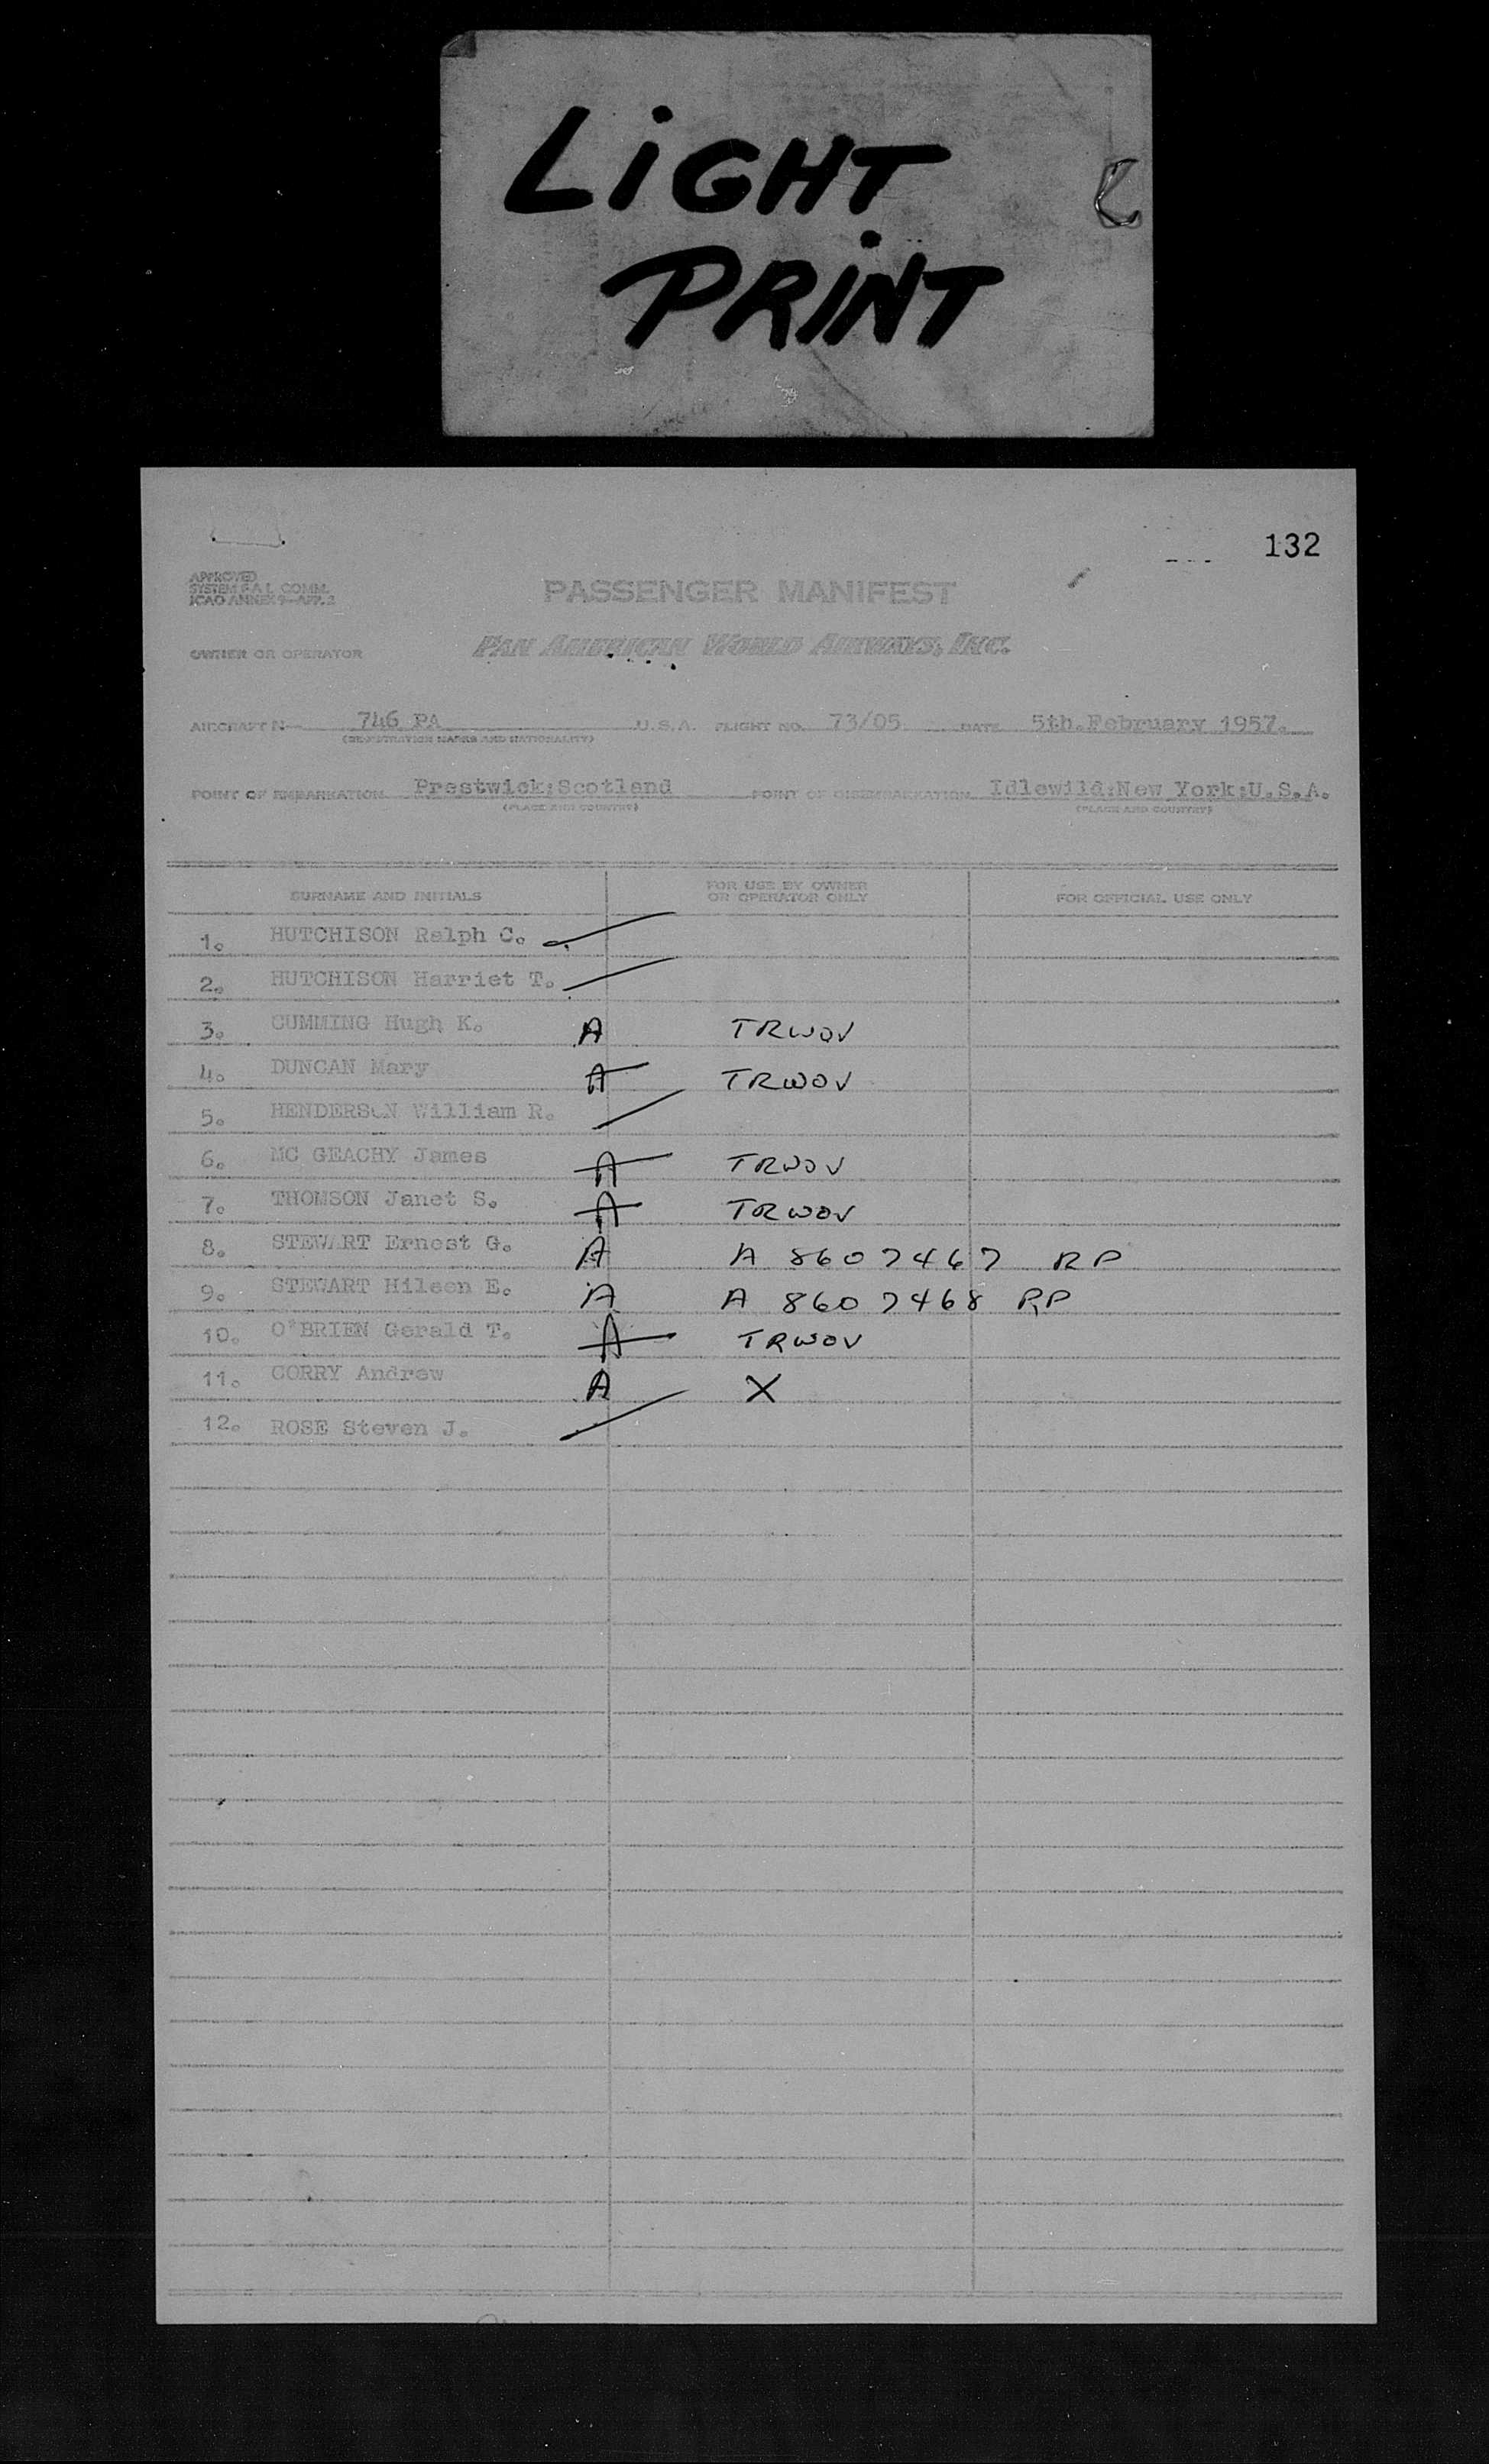 LiGHT
PRiNT
132
APPROVED
SYSTEM F.A.L. COMM.
ICAO ANNEX 9—APP. 2
PASSENGER MANIFEST
OWNER OR OPERATOR PAN AMERICAN WORLD AIRWAYS, INC.
AIRCRAFT N— 746 PA U.S.A. FLIGHT NO. 73/05 DATE 5th.February 1957.
(REGISTRATION MARKS AND NATIONALITY)
POINT OF EMBARKATION Prestwick:Scotland POINT OF DISEMBARKATION Idlewild:New York:U.S.A.
(PLACE AND COUNTRY) (PLACE AND COUNTRY)
SURNAME AND INITIALS FOR USE BY OWNER OR OPERATOR ONLY FOR OFFICIAL USE ONLY
1. HUTCHISON Ralph C.
2. HUTCHISON Harriet T.
3. CUMMING Hugh K. A TRWOV
4. DUNCAN Mary A TRWOV
5. HENDERSON William R.
6. MC GEACHY James A TRWOV
7. THOMSON Janet S. A TRWOV
8. STEWART Ernest G. A A 8607467 RP
9. STEWART Hilson E. A A 8607468 RP
10. O'BRIEN Gerald T. A TRWOV
11. CORRY Andrew A X
12. ROSE Steven J.